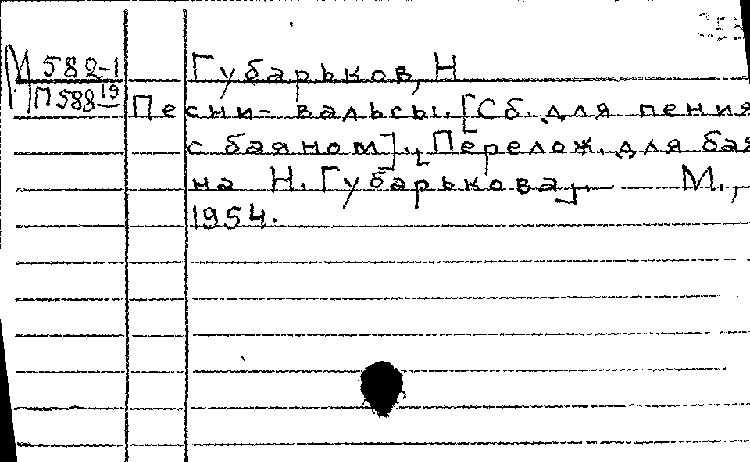 М 582-1 Губарьков, Н
П 588 19 Песни-вальсы. [Сб. для пения
с баяном]. [Перелож. для бая
на Н. Губарькова]. — М.,
1954.